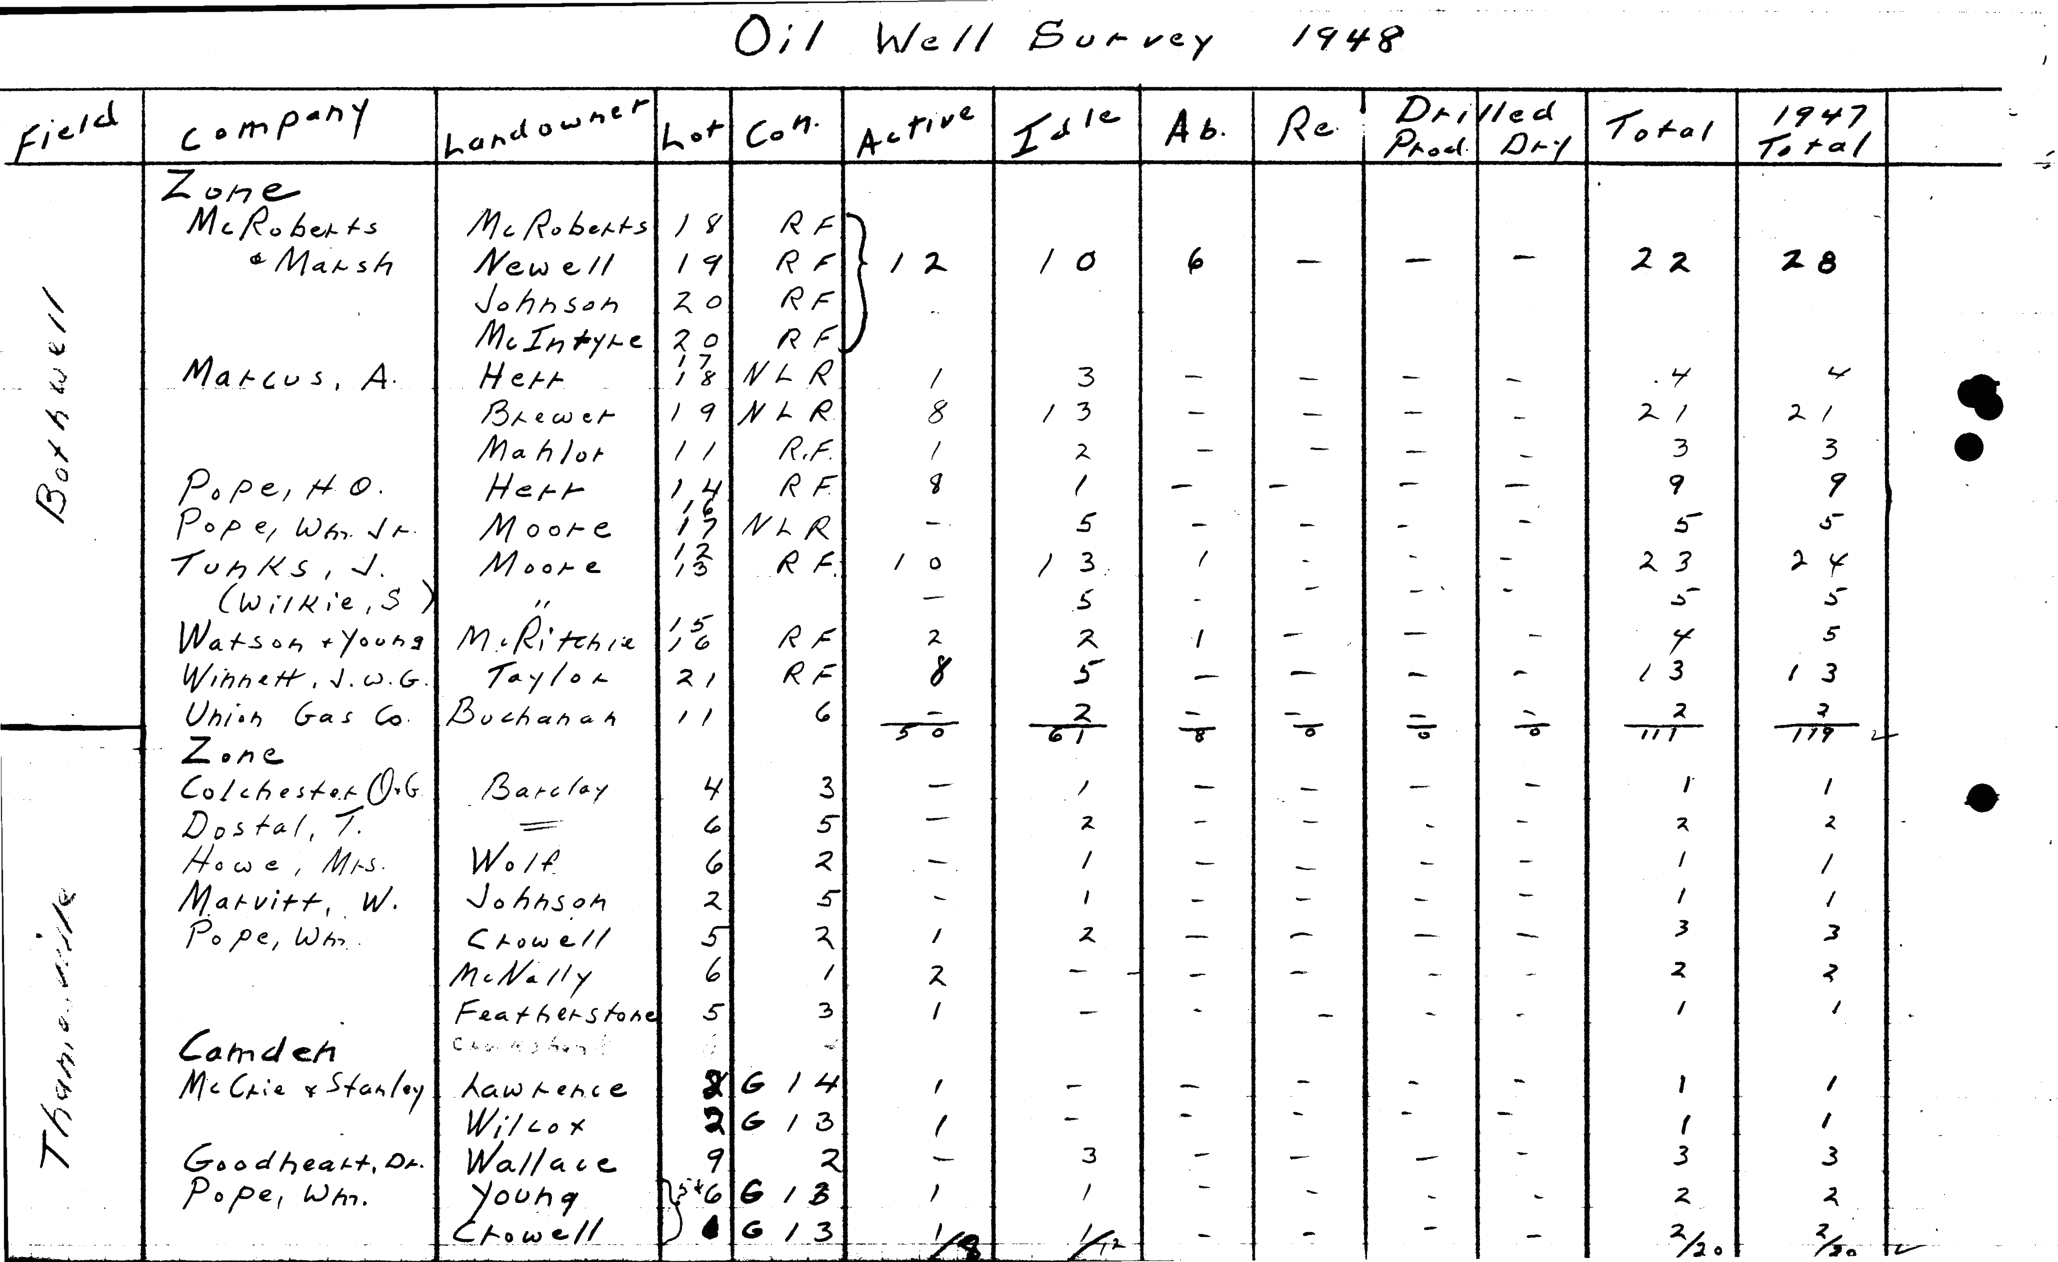 Oil Well Survey 1948
Field Company Landowner Lot Con. Active Idle Ab. Re Drilled Prod. Dry Total 1947 Total
Bothwell
Zone
McRoberts McRoberts 18 RF
& Marsh Newell 19 RF 12 10 6 — — — 22 28
Johnson 20 RF
McIntyre 20 RF
Marcus, A. Herr 17 18 NLR 1 3 — — — — 4 4
Brewer 19 NLR 8 13 — — — — 21 21
Mahlor 11 R.F. 1 2 — — — — 3 3
Pope, H.O. Herr 14 RF. 8 1 — — — — 9 9
Pope, Wm. Jr. Moore 16 17 NLR — 5 — — — — 5 5
Tunks, J. Moore 12 13 RF. 10 13 1 - - - 23 24
(Wilkie, S) " — 5 - - - - 5 5
Watson + Young McRitchie 15 16 RF 2 2 1 — — — 4 5
Winnett, J.W.G. Taylor 21 RF 8 5 — — — — 13 13
Union Gas Co. Buchanan 11 6 — 2 — — — — 2 2
50 61 8 0 0 0 111 119
Thamesville
Zone
Colchester O+G Barclay 4 3 — 1 — — — — 1 1
Dostal, T. = 6 5 — 2 — — - — 2 2
Howe, Mrs. Wolf 6 2 — 1 — — — — 1 1
Marvitt, W. Johnson 2 5 - 1 — — — — 1 1
Pope, Wm. Crowell 5 2 1 2 — — — — 3 3
McNally 6 1 2 — — — — - 2 2
Featherstone 5 3 1 — - — - - 1 1
Camden
McCrie & Stanley Lawrence 2 G 14 1 — — — - - 1 1
Wilcox 2 G 13 1 - - - - — 1 1
Goodheart, Dr. Wallace 9 2 — 3 — — — - 3 3
Pope, Wm. Young 5+6 G 13 1 1 - - - - 2 2
Crowell G 13 1/8 1/12 - - - - 2/20 2/20